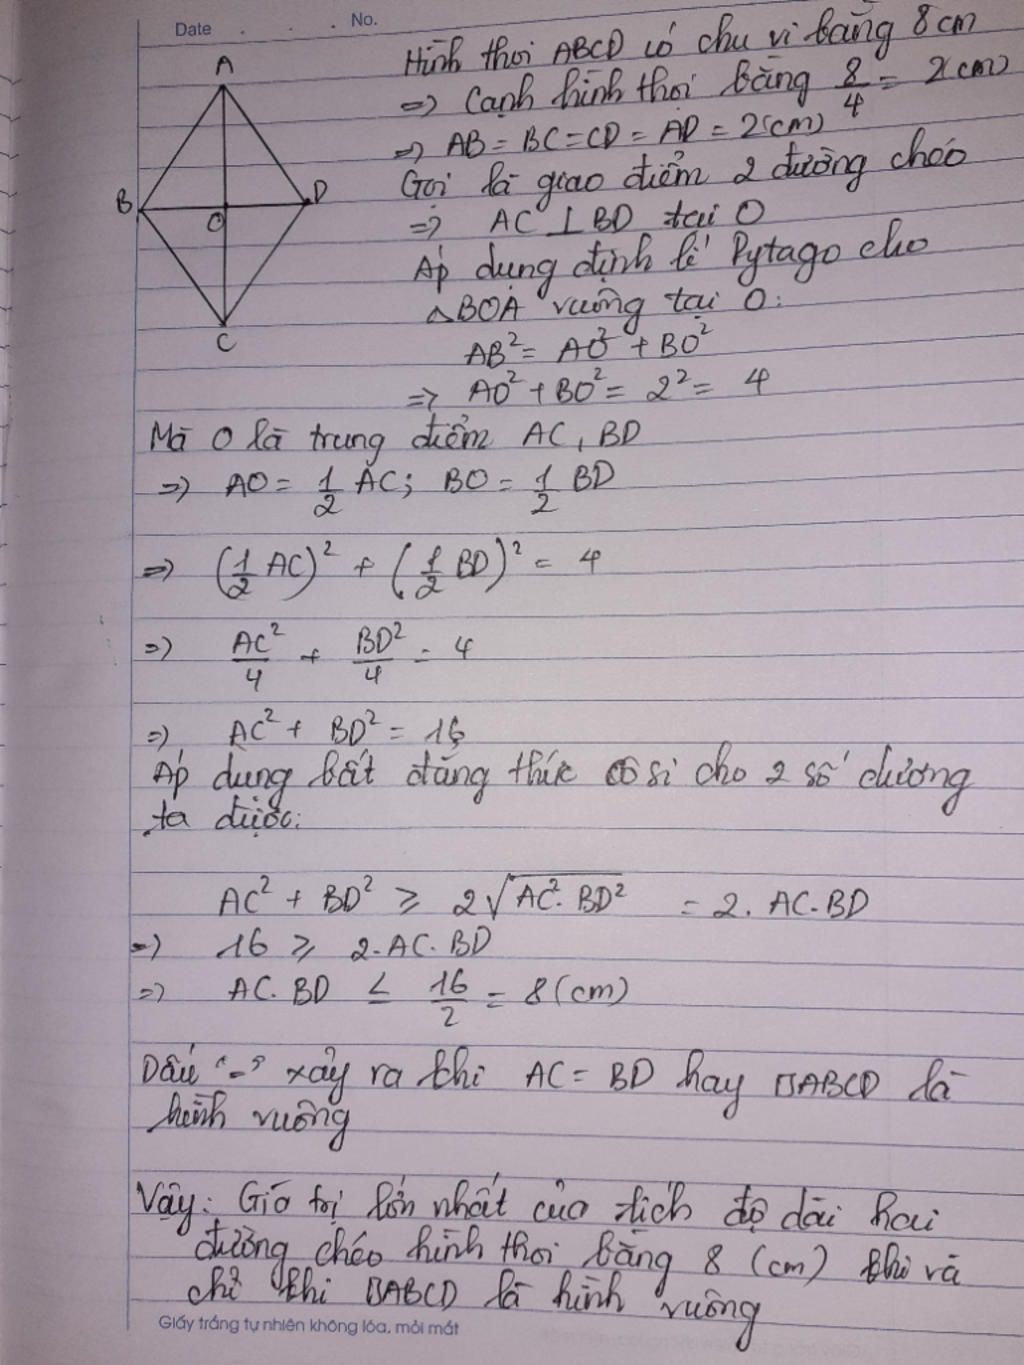 Date . . . No.
Hình thoi ABCD có chu vi bằng 8cm
=> Cạnh hình thoi bằng 8/4 = 2(cm)
=> AB = BC = CD = AD = 2(cm)
Gọi là giao điểm 2 đường chéo
=> AC ⊥ BD tại O
Áp dụng định lí Pytago cho
△BOA vuông tại O:
AB² = AO² + BO²
=> AO² + BO² = 2² = 4
A
B
D
O
C
Mà O là trung điểm AC, BD
=> AO = 1/2 AC; BO = 1/2 BD
=> (1/2 AC)² + (1/2 BD)² = 4
=> AC²/4 + BD²/4 = 4
=> AC² + BD² = 16
Áp dụng bất đẳng thức cô si cho 2 số dương
ta được:
AC² + BD² ≥ 2√AC².BD² = 2. AC.BD
=> 16 ≥ 2.AC.BD
=> AC.BD ≤ 16/2 = 8 (cm)
Dấu "=" xảy ra khi AC = BD hay □ABCD là
hình vuông
Vậy: Giá trị lớn nhất của tích độ dài hai
đường chéo hình thoi bằng 8 (cm) khi và
chỉ khi □ABCD là hình vuông
Giấy trắng tự nhiên không lóa, mỏi mắt